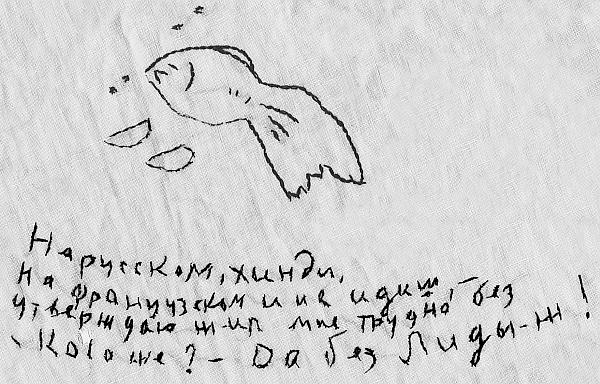 На русском, хинди,
на французском и на идиш, –
утверждаю ж-ить мне трудно без
Кого же? – Да без Лиды-ж!